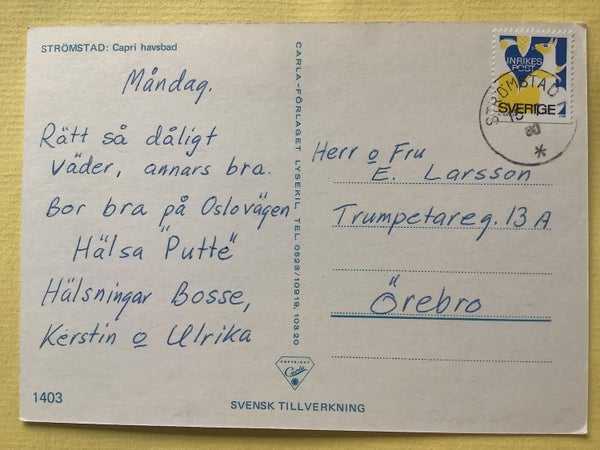 STRÖMSTAD: Capri havsbad
Måndag.
Rätt så dåligt
väder, annars bra.
Bor bra på Oslovägen
Hälsa "Putte"
Hälsningar Bosse,
Kerstin o Ulrika
1403
CARLA-FÖRLAGET LYSEKIL, TEL. 0523/10919, 10320
COPYRIGHT
Carla
SVENSK TILLVERKNING
INRIKES
POST
SVERIGE
STRÖMSTAD
80
*
Herr o Fru
E. Larsson
Trumpetareg. 13 A
Örebro